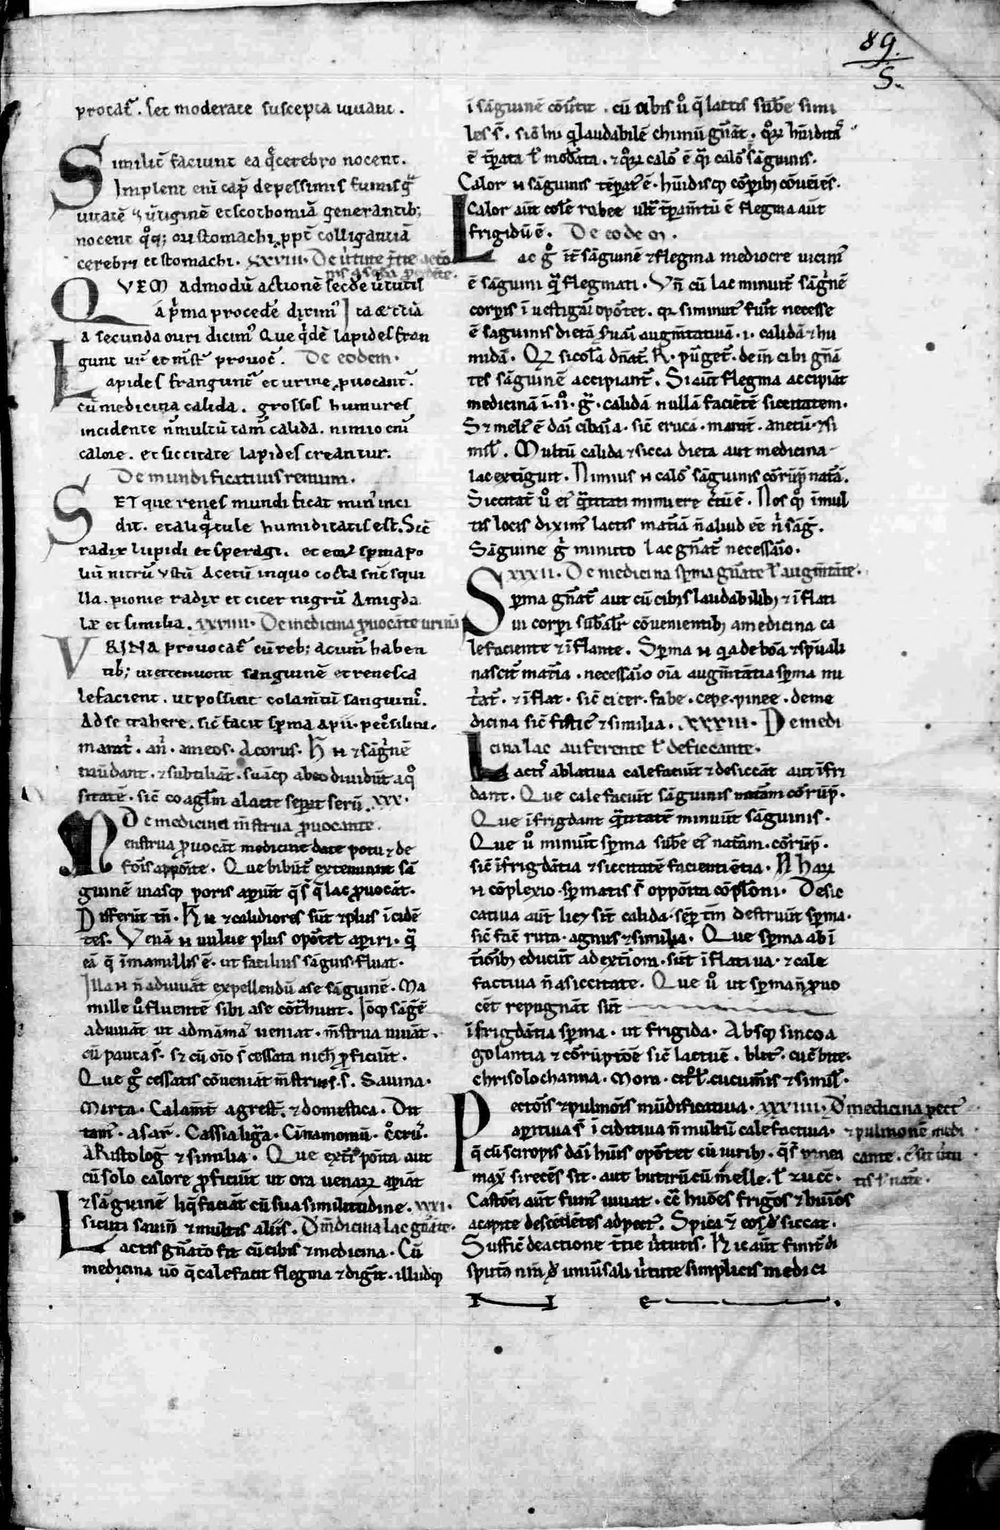 89.
S.
procat̄. Set moderate suscepta iuuant.
Similit̄ faciunt ea q̄ cerebro nocent.
Implent eni cap̄ depessimis fumis
uitatē & u̓tiginē et scothomiā generantib;
nocent q̊q; ori stomachi, ppt̄ colligantiā
cerebri et stomachi. xxviii. De
QVEM Admodū actionē secd̄e u̓tutis
a p̓ma procedē dixim̓ Ita & t̓tiā
a secunda ouri dicim̓ Que q̓dē lapides fran
gunt et provoc̄. De eodem.
Lapides frangunt̄ et urinē ꝓuocant̄.
cū medicina calida. grossos humores
incidente n̄ multū tam̄ calida. nimio eni
calore. et siccitate lapides creantur.
De mundificatiuis renum.
SET que renes mundificat min̓ inci
dit. et aliq̄tule humiditatis est. Sic̄
radix lupidi et speragi. et eoꝝ sp̄ma po
lii nitrū ustū Acetū in quo cocta sint squi
lla. pionie radix et cicer nigrū Amigda
læ et similia. xxviiii. De medicina ꝓuocāte urinā
VRINA provocat̄ cū reb; acum̄ haben
tib; sanguinē et renes ca
lefacient. ut possint colam̄tū sanguin̄.
Ad se trahere. sic̄ facit sp̄ma apii. petsilini.
marat̄. an̄. ameos. Acorus. H̄ n & sāg̓nē
mūdant. & subtiliāt. suāq; ab eo diuidūt aq̊
sitatē. sic̄ coagl̄m a lacte sep̄at serū. xxx.
De medicina m̄strua ꝓuocante.
Menstrua ꝓuocāt medicine date potu & de
foris apposite. Que bibūt̄ extenuant sā
guinē uiasq; poris apiūt q̄ s̄ q̄ lac ꝓuocāt.
Differūt tn̄. H̄ n & calidiores sūt & plus īcidē
tes. Venā n uulue plus opōtet apiri. q̄
eā q̄ ī mamillis ē. ut facilius sāguis fluat.
Illa n n̄ adiuuāt expellendū a se sāguinē. Ma
mille u̓ fluentē sibi a se cōt̓hunt. Iō q; sāg̓nē
adiuuāt ut ad māmā ueniat. m̄strua iuuāt.
cū pauca s̄. s; cū oīo s̄ cessata nich̄ ꝓficiūt.
Que g̊ cessatis cōueniāt m̄struis. s̄. Sauina.
Mirta. Calam̄t agrest̄. & domestica. Dit
tam̄. asar. Cassia lig̓a. Cinamomū. c̊cū.
aRistolog̓ & similia. Que ext̓ posita aut
cū solo calore ꝓficiūt ut ora uenaꝝ apiāt
& sāguinē liq̄faciāt cū sua similitudine. xxxi.
sicuti sauin̄ & multis aliis. D̓ medicina lac gn̄ate.
Lactis gn̄atio fit cū cibis & medicina. Cū
medicina uo q̄ calefacit flegma & dig̓it. illudq;
ī sāguinē cōu̓tit. cū cibis u̓ q̄ lactis sūbe simi
les s̄. sic̄ hii q̄ laudabilē chimū gn̄āt. q̄ꝝ hūidita̓
ē tp̄ata l̄ mod̓ata. & q̄ꝝ calo̓ ē q̓si calo̓ sāguinis.
Calor n sāguinis tēp̄at̓ ē. hūidisq; corp̄ib; cōueīes.
Calor aut̄ cole̓ rubee ult̓ tp̄am̄tū ē flegma aut̄
frigidū ē. De eodem.
Lac g̊ int̄ sāguinē & flegma mediocre uicin̓
ē sāguini q̄ flegmati. Vn̄ cū lac minuit̄ sāg̓nē
corpis ī uestigari opōtet. q̄ si minuit̄ fu̓it necesse
ē sāguinis dietā s̓uari augm̄tatiuā. i. calidā & hu
midā. Q̄ si cola̓ dn̄at̄. R. p̓us purget̄. dein̄ cibi gn̄a
tes sāguinē accipiant̄. Si aut̄ flegma accipiāt
medicinā ī. ii̊. g̓. calidā nullā faciētē siccitatem.
Set meli̓ ē dari cibaria. sic̄ erucā. marat̄. anetū. & si
mil̓. Multū calida & sicca dieta aut medicina
lac extiguit. Nimius n calo̓ sāguinis corrūp̄ natā.
Siccitat̄ u̓ ei̓ q̄ntitati minuere c̓tū ē. Nos q; ī mul
tis locis dixim̓ lactis māt̓iā n̄ aliud ēē n̄ sāg̓.
Sāguine g̓ minuto lac gn̄at̄ necessario.
xxxii. De medicina sp̄ma gn̄ate l̄ augm̄tāte.
Sp̄ma gn̄at̄ aut cū cibis laudabilib; & īflati
uis corpi subt̄alit̄ cōuenientib; a medicina ca
lefaciente & īflante. Sp̄ma n q̄a de bōa & sp̄uali
nascit̄ mat̓ia. necessario oīa augm̄tātia sp̄ma nu
t̓at̄. & īflat. sic̄ cicer. fabe. cepe. pinee. de me
dicina sic̄ fistic̄ & similia. xxxiii. De medi
cina lac auferente l̄ desiccante.
Lactis ablatiua calefaciūt & desiccāt aut īfri
dant. Que calefaciūt sāguinis natam corrūp̄.
Que īfrigdant q̄ntitatē minuūt sāguinis.
Que u̓ minuūt sp̄ma sūbe ei̓ natam. corrūp̄.
sic̄ īfrigdātia & siccitatē facientia. Naꝝ
n cōplexio spmatis s̄ opposita cōplōni. Desic
catiua aut̄ licꝫ sīt calida. sēp̄ tn̄ destruūt sp̄ma.
sic̄ fac̄ ruta. agnus & similia. Que sp̄ma ab ī
t̓iorib; educūt ad ext̓iora. sūt īflatiua. & cale
factiua n̄ a siccitate. Que u̓ ut sp̄ma n̄ ꝓuo
cēt repugnāt sūt
īfrigdātia sp̄ma. ut frigida. Absq; sinco a
golantia & corrūptōe sic̄ lactuce. blite̓. cucūbite.
chrisolochanna. Mora. citl̄l̄. cucum̄is & simil̓.
Pectoris & pulmōis mūdificatiua. xxxiiii. D̓ medicina pect̓
aperitiua s̄ īciditiua n̄ multū calefactiua. & pulmonē mūdi
q̄ cū siropis dari hui̓s opōtet cū iurib;. q̄ s̄ uinea cante. c̄ sit u̓tu
max̓ si recēs sit. aut butirū cū melle. l̄ zucc̄. tis s̄ nate.
Castorei aut̄ fumi iuuat. cē hūores frigos & hūīdos
a capite descēdētes ad pect̓. Spica & eos desiccat.
Suffic̄ de actione t̓tie u̓tutis. Hic aut̄ finit̄ di
sputatio nr̄a de uniu̓sali u̓tute simplicis medici
N I E